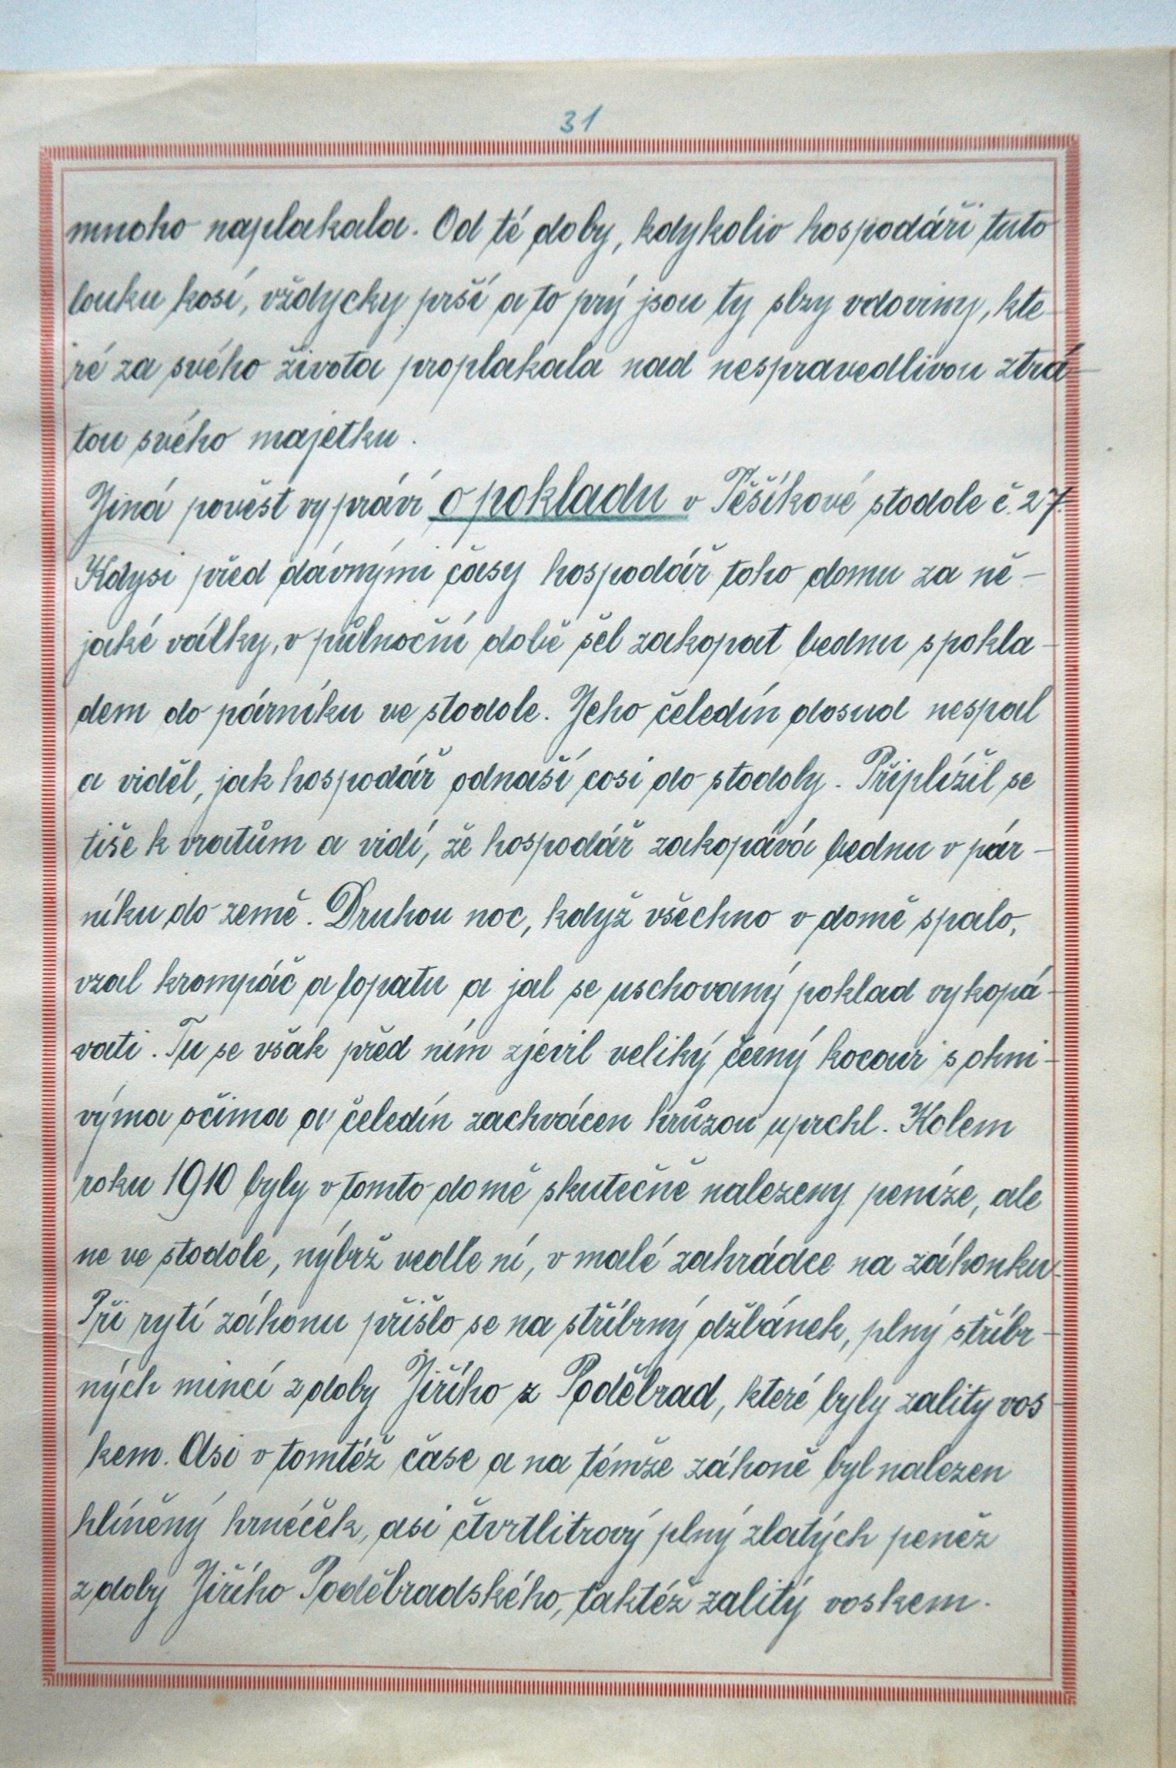 31
mnoho naplakala. Od té doby, kdykoliv hospodáři tuto
louku kosí, vždycky prší a to prý jsou ty slzy vdoviny, kte-
ré za svého života proplakala nad nespravedlivou ztrá-
tou svého majetku.
Jiná pověst vypráví o pokladu v Těšíkově stodole č. 27.
Kdysi před dávnými časy hospodář toho domu za ně-
jaké války, v půlnoční době šel zakopat bednu s pokla-
dem do párníku ve stodole. Jeho čeledín dosud nespal
a viděl, jak hospodář odnaší cosi do stodoly. Připlížil se
tiše k vratům a vidí, že hospodář zakopává bednu v pár-
níku do země. Druhou noc, když všechno v domě spalo,
vzal krompáč a lopatu a jal se uschovaný poklad vykopá-
vati. Tu se však před ním zjevil veliký černý kocour s ohni-
výma očima a čeledín zachvácen hrůzou uprchl. Kolem
roku 1910 byly v tomto domě skutečně nalezeny peníze, ale
ne ve stodole, nýbrž vedle ní, v malé zahrádce na záhonku.
Při rytí záhonu přišlo se na stříbrný džbánek, plný stříbr-
ných mincí z doby Jiřího z Poděbrad, které byly zality vos-
kem. Asi v tomtéž čase a na témže záhoně byl nalezen
hlíněný hrnéček, asi čtvrtlitrový plný zlatých peněz
z doby Jiřího Poděbradského, taktéž zalitý voskem.